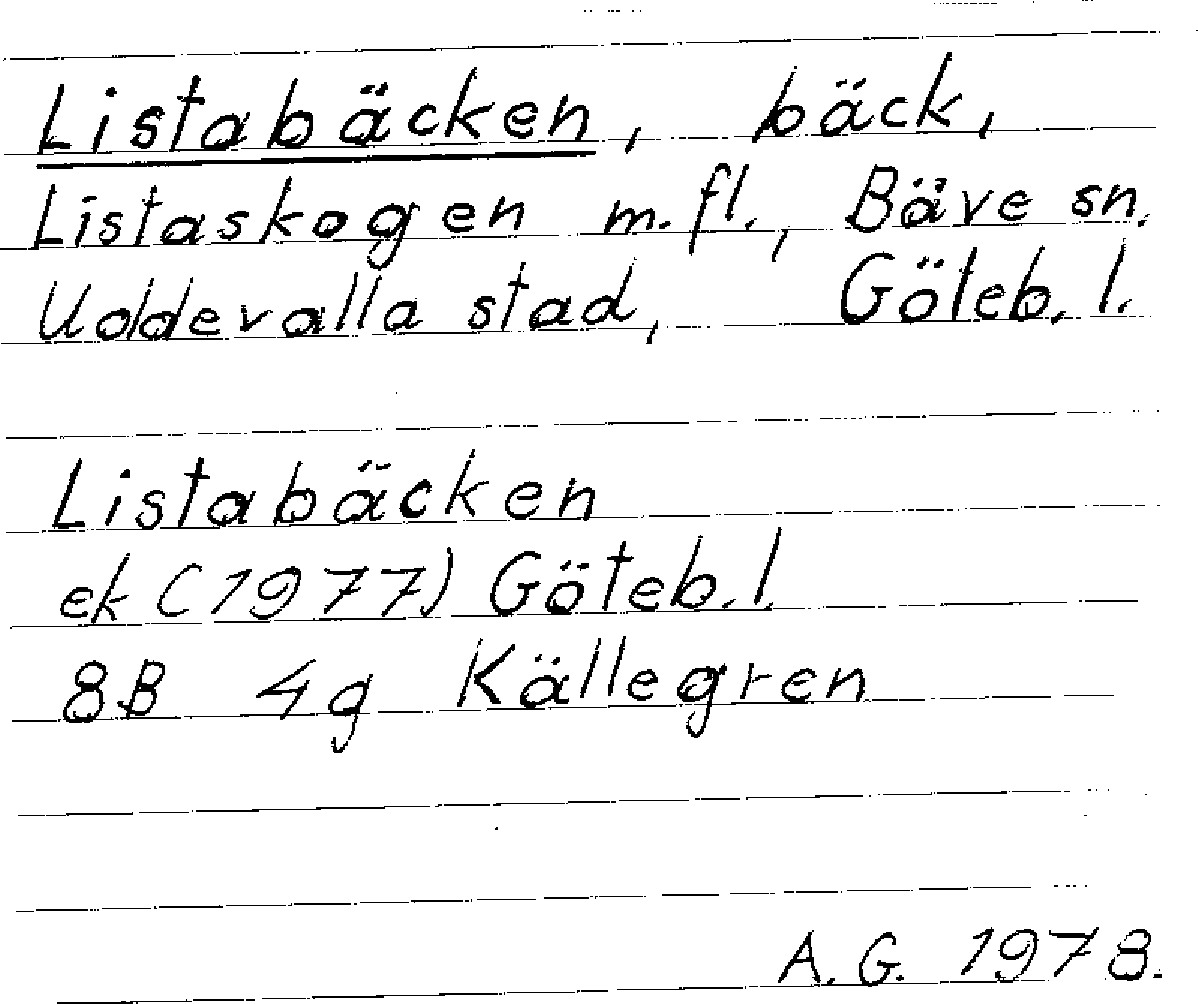 Listabäcken, bäck,
Listaskogen m.fl., Bäve sn.
Uddevalla stad, Göteb. l.
Listabäcken
ek (1977) Göteb. l.
8B 4g Källegren
A. G. 1978.